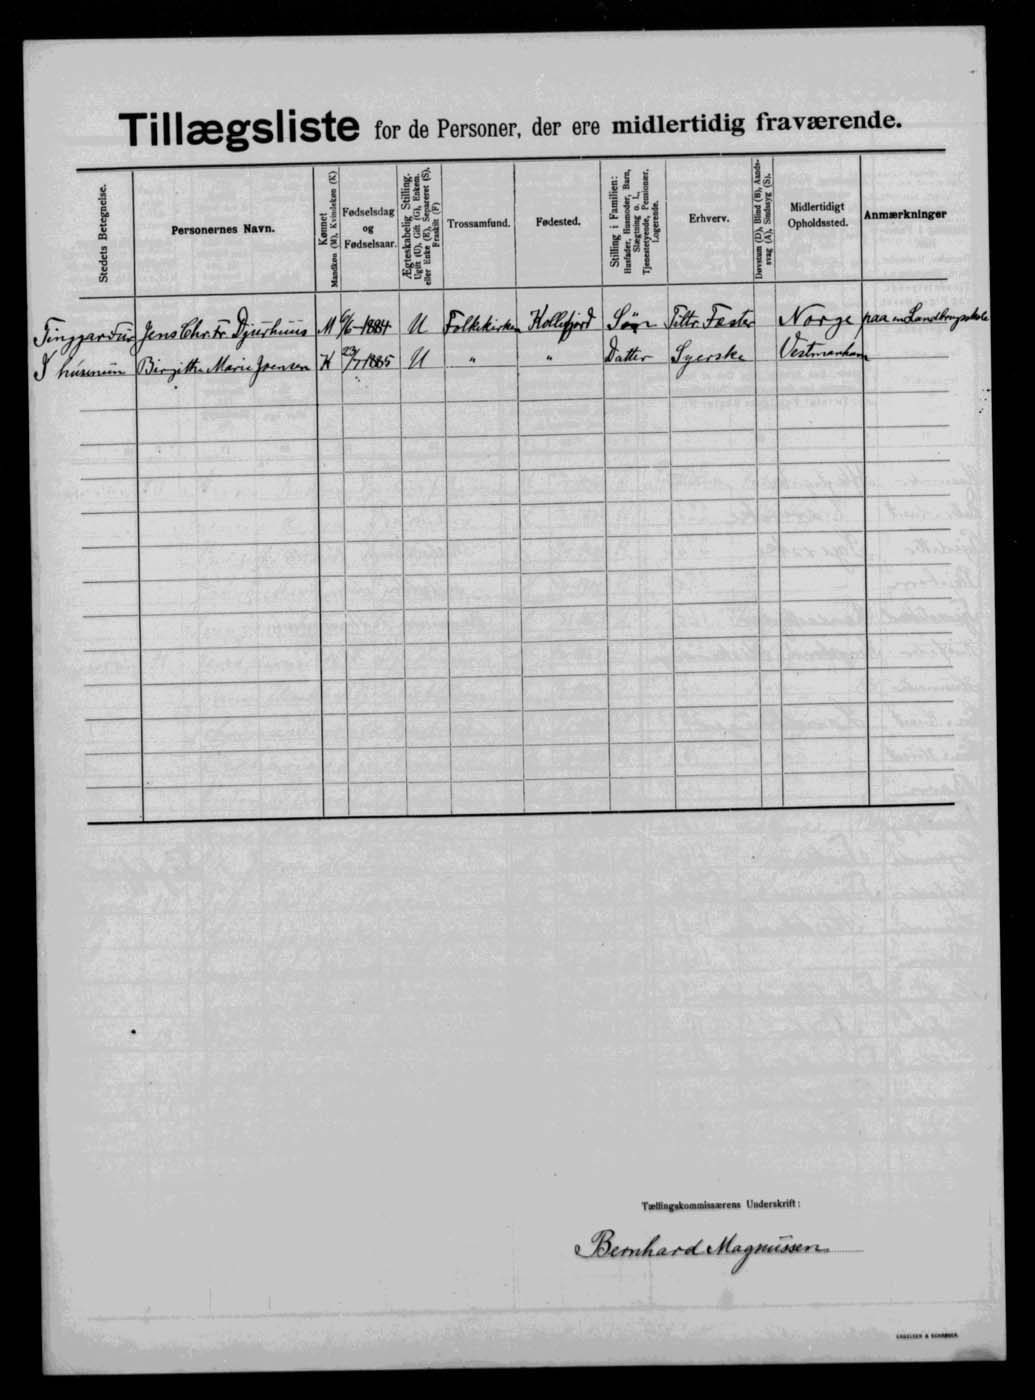 Tillægsliste for de Personer, der ere midlertidig fraværende.
Stedets Betegnelse.
Personernes Navn.
Kønnet
Mandkøn (M), Kvindekøn (K)
Fødselsdag
og
Fødselsaar.
Ægteskabelig Stilling.
Ugift (U), Gift (G), Enkem.
eller Enke (E), Separeret (S),
Fraskilt (F)
Trossamfund.
Fødested.
Stilling i Familien:
Husfader, Husmoder, Barn,
Slægtning o. l.,
Tjenestetyende, Pensionær,
Logerende.
Erhverv.
Døvstum (D), Blind (B), Aands-
svag (A), Sindssyg (S).
Midlertidigt
Opholdssted.
Anmærkninger
Jens Chr. Fr. Djurhuus M 6/6-1884 U Folkekirken Kollefjord Søn Fæster Norge paa en Landbrugsskole
I húsinum Birgitte Marie Joensen K 1885 U " " Datter Syerske Vestmanhavn
Tællingskommissærens Underskrift:
Bernhard Magnussen